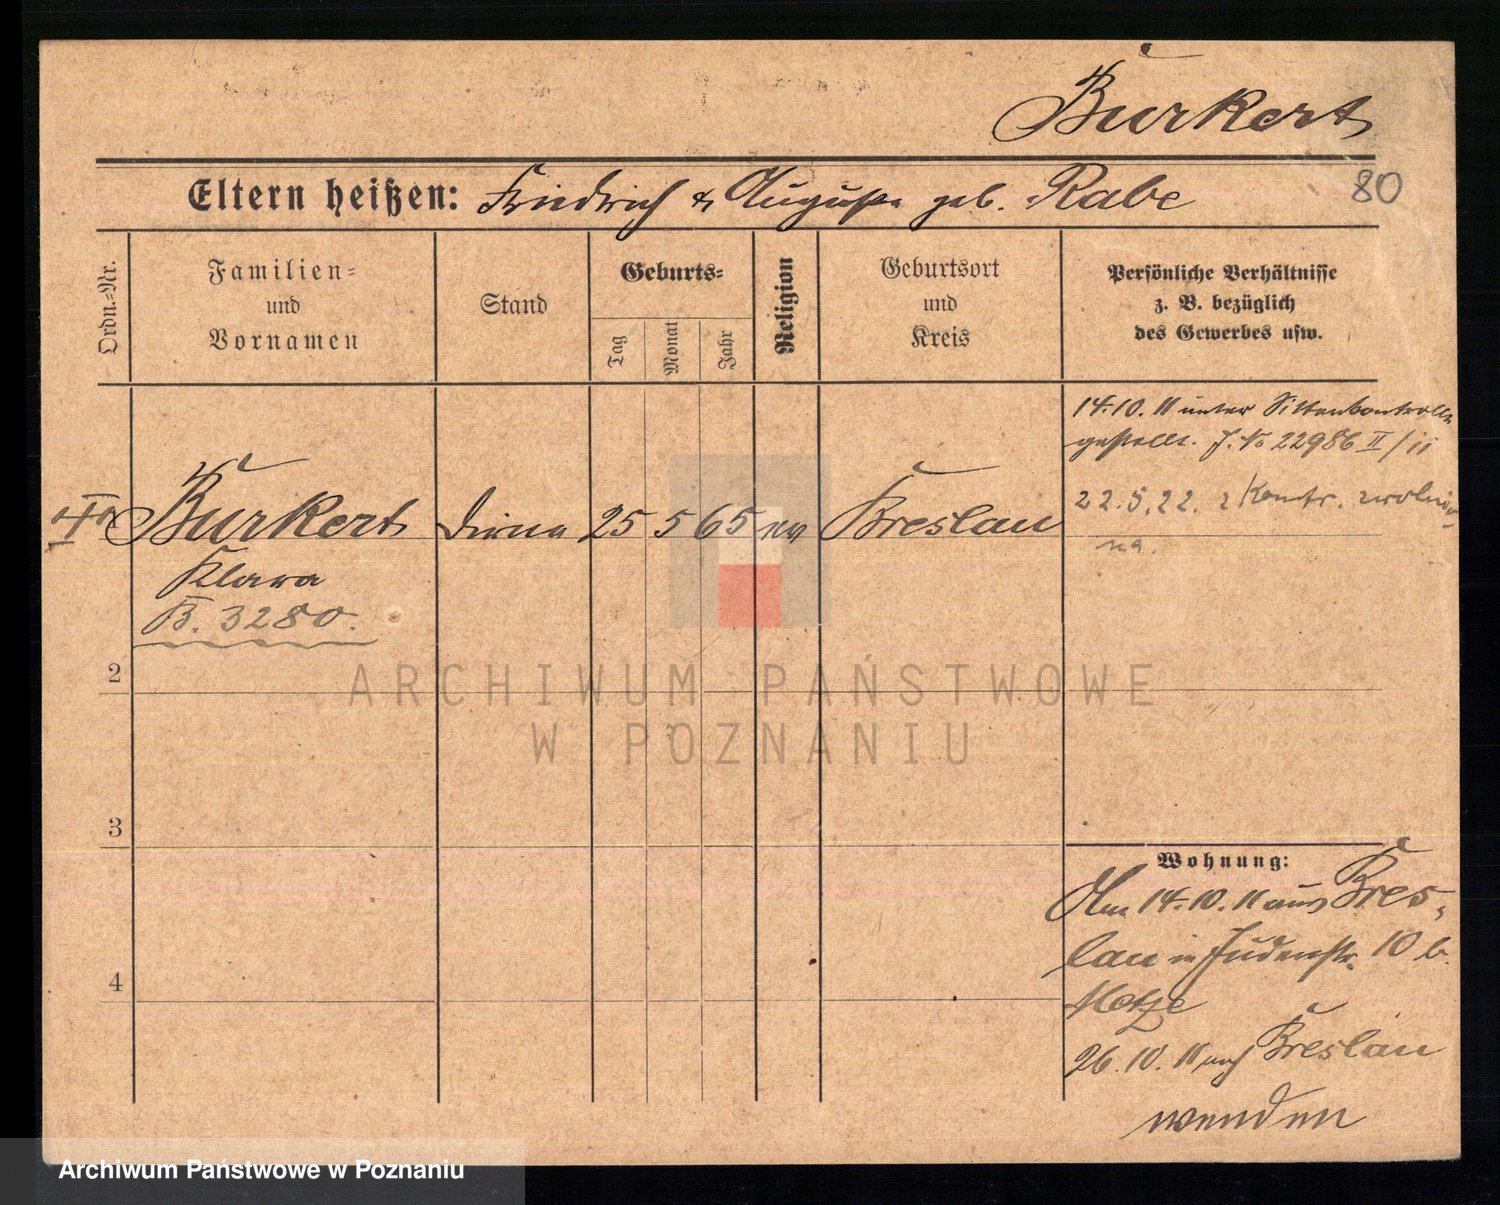 Burkert
Eltern heißen: Friedrich & Auguste geb. Rabe
80
Ordn.-Nr.
Familien-
und
Vornamen
Stand
Geburts-
Tag
Monat
Jahr
Religion
Geburtsort
und
Kreis
Persönliche Verhältnisse
z. B. bezüglich
des Gewerbes usw.
14.10.11 unter Sittenkontrolle
gestellt. J. No 22986 II/11
22.5.22. z Kontr. zwolnio-
na.
Burkert Dirne 25 5 65 ev Breslau
Klara
B. 3280.
2
3
4
Wohnung:
Am 14.10.11 aus Bres-
lau in Judenstr. 10 b.
Metze
26.10.11 nach Breslau
wenden
ARCHIWUM PAŃSTWOWE
W POZNANIU
Archiwum Państwowe w Poznaniu